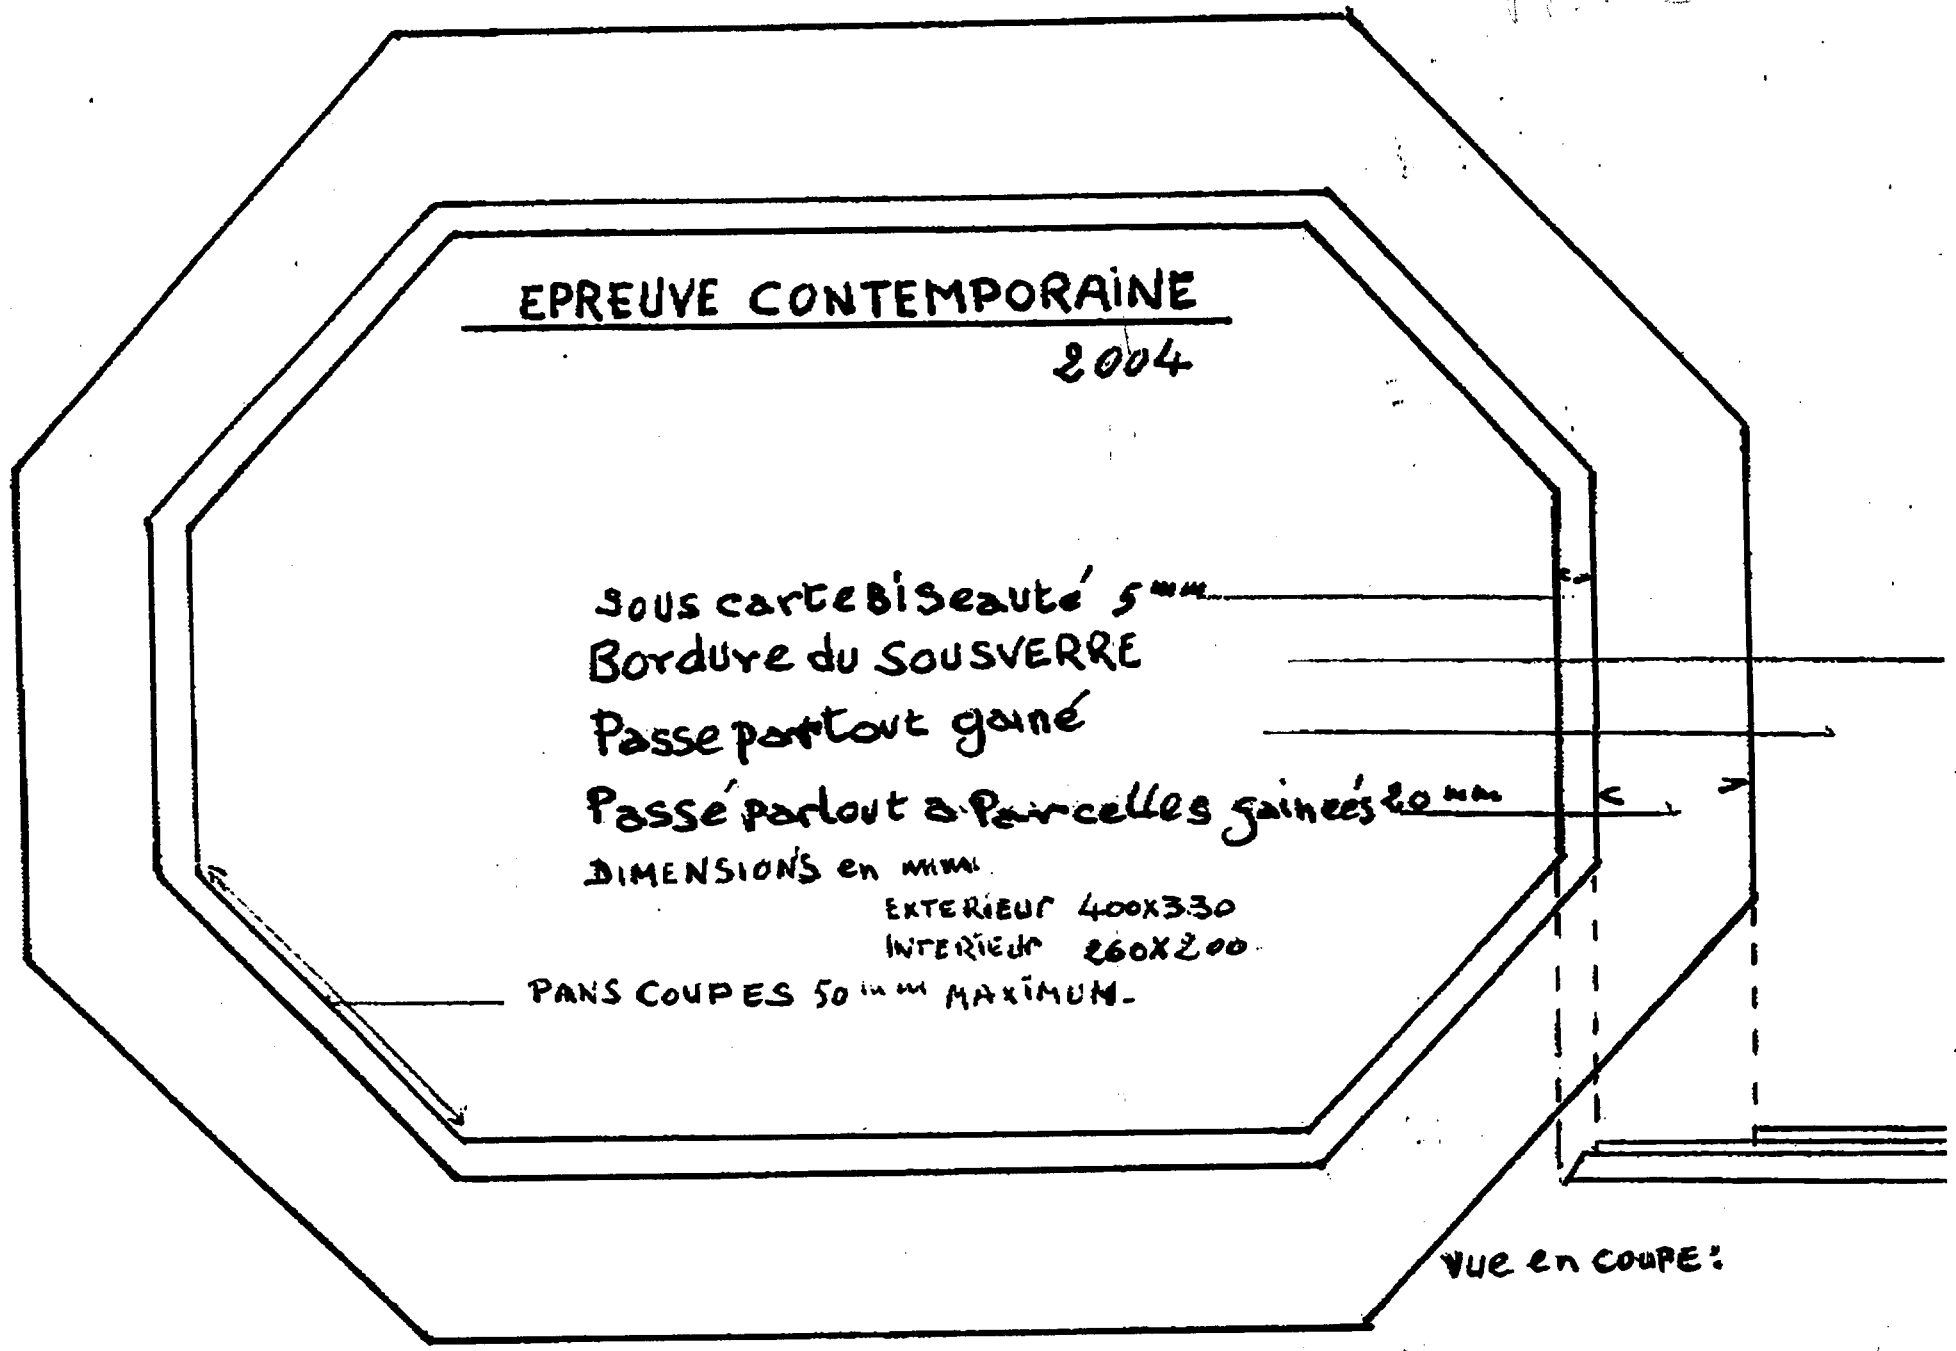 EPREUVE CONTEMPORAINE
2004
sous carte Biseauté 5 mm
Bordure du SOUSVERRE
Passe partout gainé
Passé partout a Parcelles gaineés 20 mm
DIMENSIONS en mm.
EXTERIEUR 400X330
INTERIEUR 260X200
PANS COUPES 50 mm MAXIMUM-
vue en COUPE: